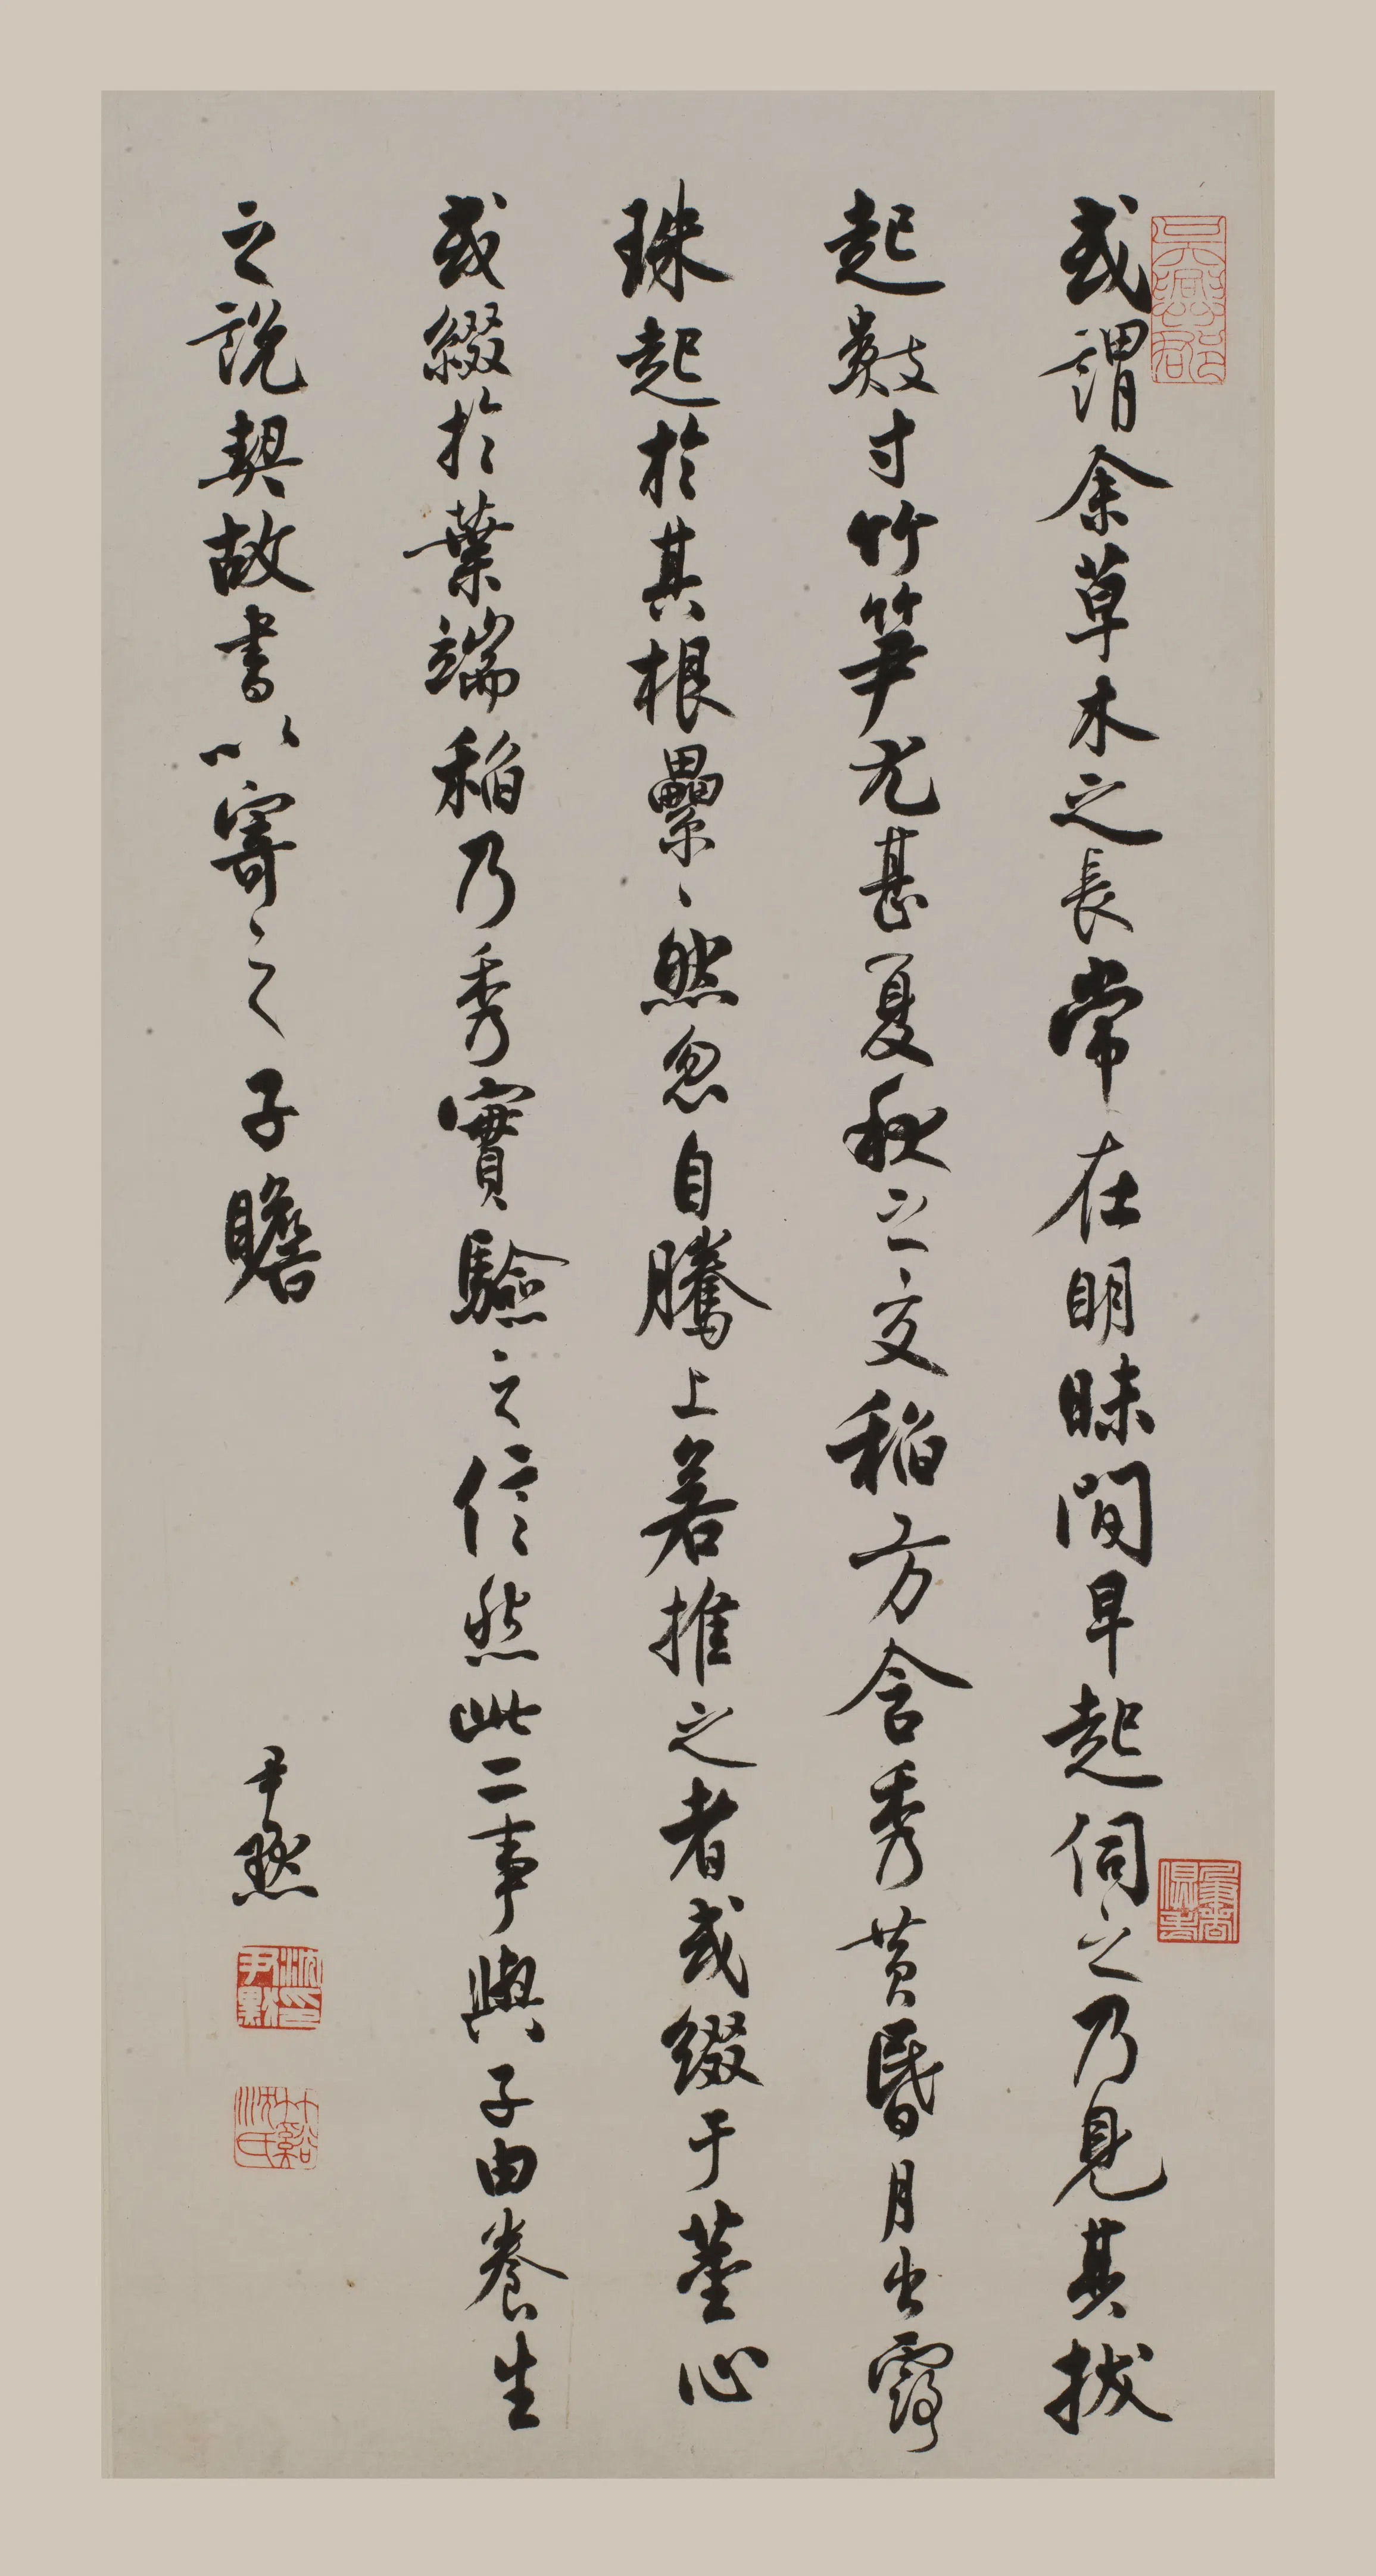 或謂余草木之長常在明昧間早起伺之乃見其拔
起數寸竹笋尤甚夏秋之交稻方含秀黄昏月出露
珠起於其根纍〻然忽自騰上若推之者或綴于莖心
或綴於葉端稻乃秀實驗之信然此二事與子由養生
之說契故書以寄之子瞻
尹默
沈尹默印
竹谿沈氏